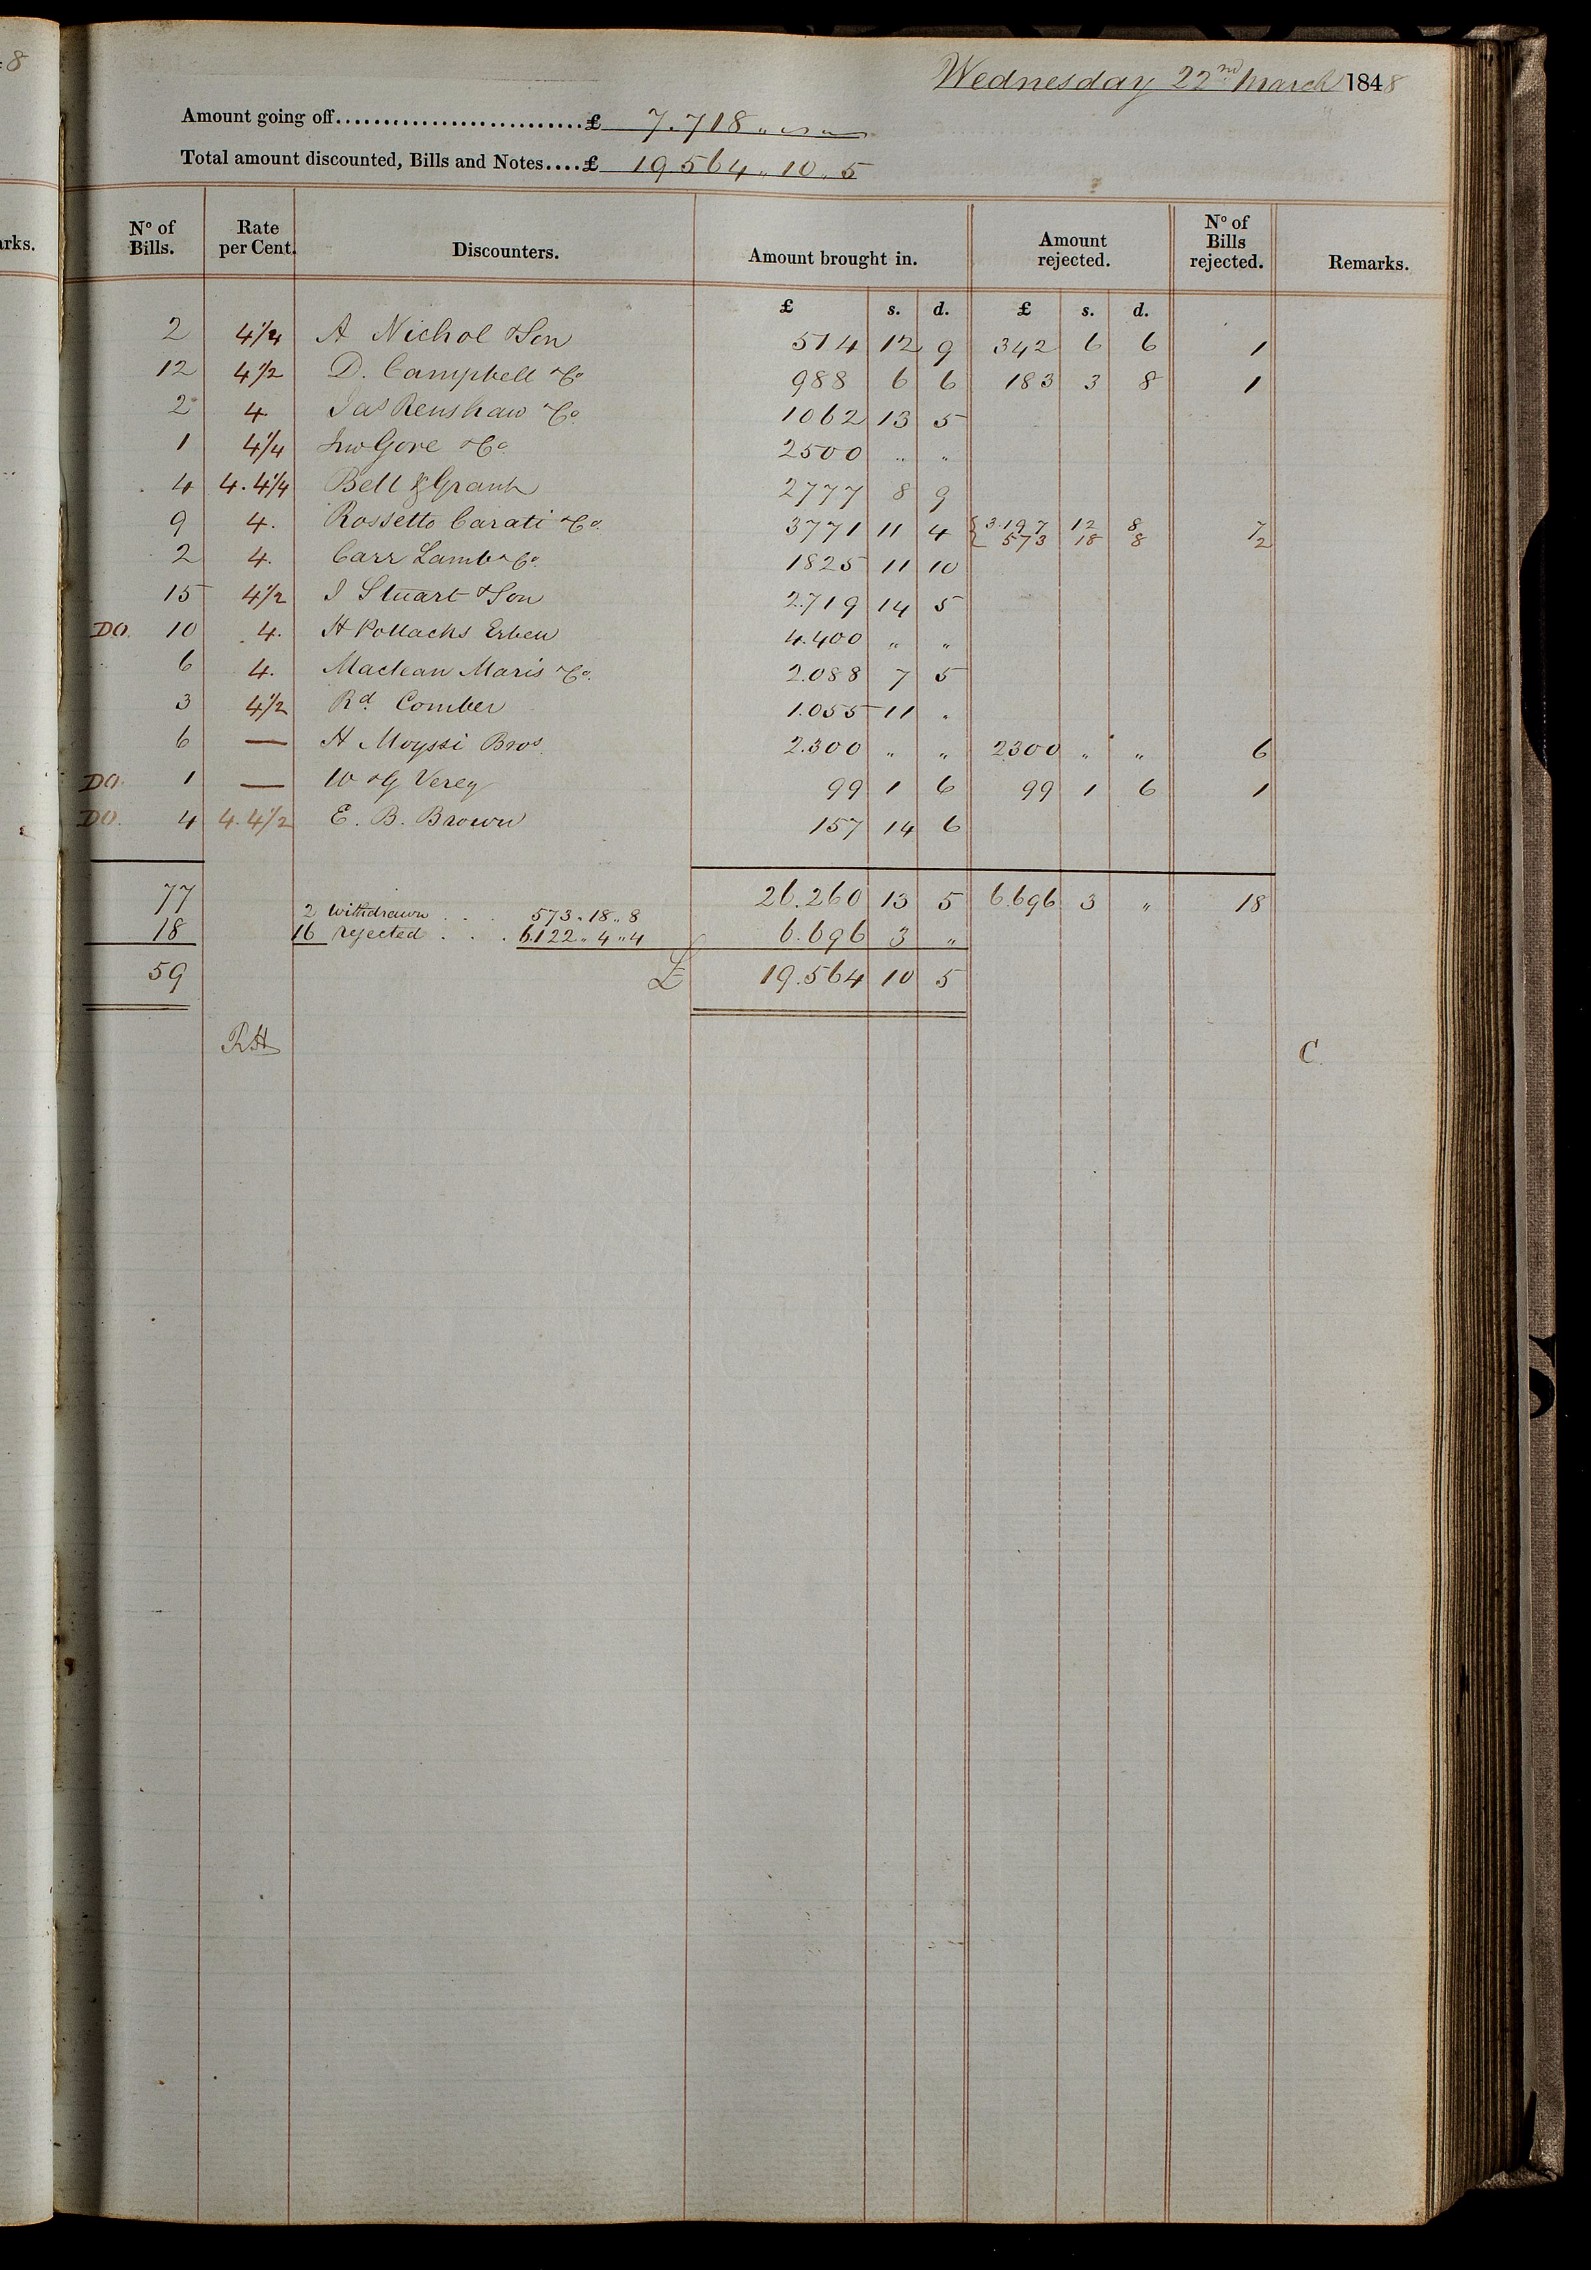 :8
arks.
Wednesday 22nd March 1848
Amount going off..........................£ 7.718 „ „ „
Total amount discounted, Bills and Notes....£ 19.564 „ 10 „ 5
No of Bills. Rate per Cent. Discounters. Amount brought in. Amount rejected. No of Bills rejected. Remarks.
£ s. d. £ s. d.
2 4 1/4 A Nichol & Son 514 12 9 342 6 6 1
12 4 1/2 D. Campbell & Co 988 6 6 183 3 8 1
2 4 Jas Renshaw & Co. 1062 13 5
1 4 1/4 Jno Gore & Co. 2500 „ „
4 4. 4 1/4 Bell & Grant 2777 8 9
9 4. Rossetto Carati & Co. 3771 11 4 { 3.197 12 8 7
573 18 8 2
2 4. Carr Lamb & Co. 1825 11 10
15 4 1/2 J Stuart & Son 2.719 14 5
DO. 10 4. H Pollacks Erben 4.400 „ „
6 4. Maclean Maris & Co. 2.088 7 5
3 4 1/2 Rd. Comber 1.055 11 „
6 — H Moyssi Bros. 2.300 „ „ 2300 „ „ 6
DO. 1 — W & G Verey 99 1 6 99 1 6 1
DO. 4 4. 4 1/2 E. B. Brown 157 14 6
77 26.260 13 5 6.696 3 „ 18
2 withdrawn . . . 573 „ 18 „ 8
18 16 rejected . . . 6.122 „ 4 „ 4 6.696 3 „
59 £ 19.564 10 5
RH C